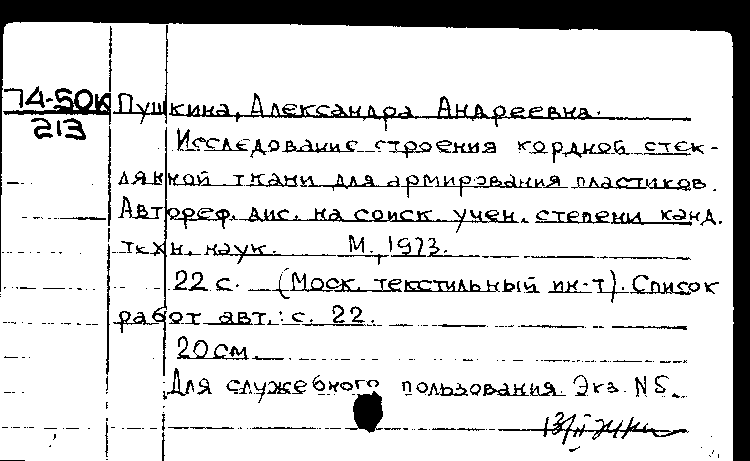 74-50к Пушкина, Александра Андреевна.
213
Исследование строения кордной стек-
лянной ткани для армирования пластиков.
Автореф. дис. на соиск. учен. степени канд.
техн. наук. М., 1973.
22 с. (Моск. текстильный ин-т). Список
работ авт.: с. 22.
20 см.
Для служебного пользования. Экз. N5.
13/II